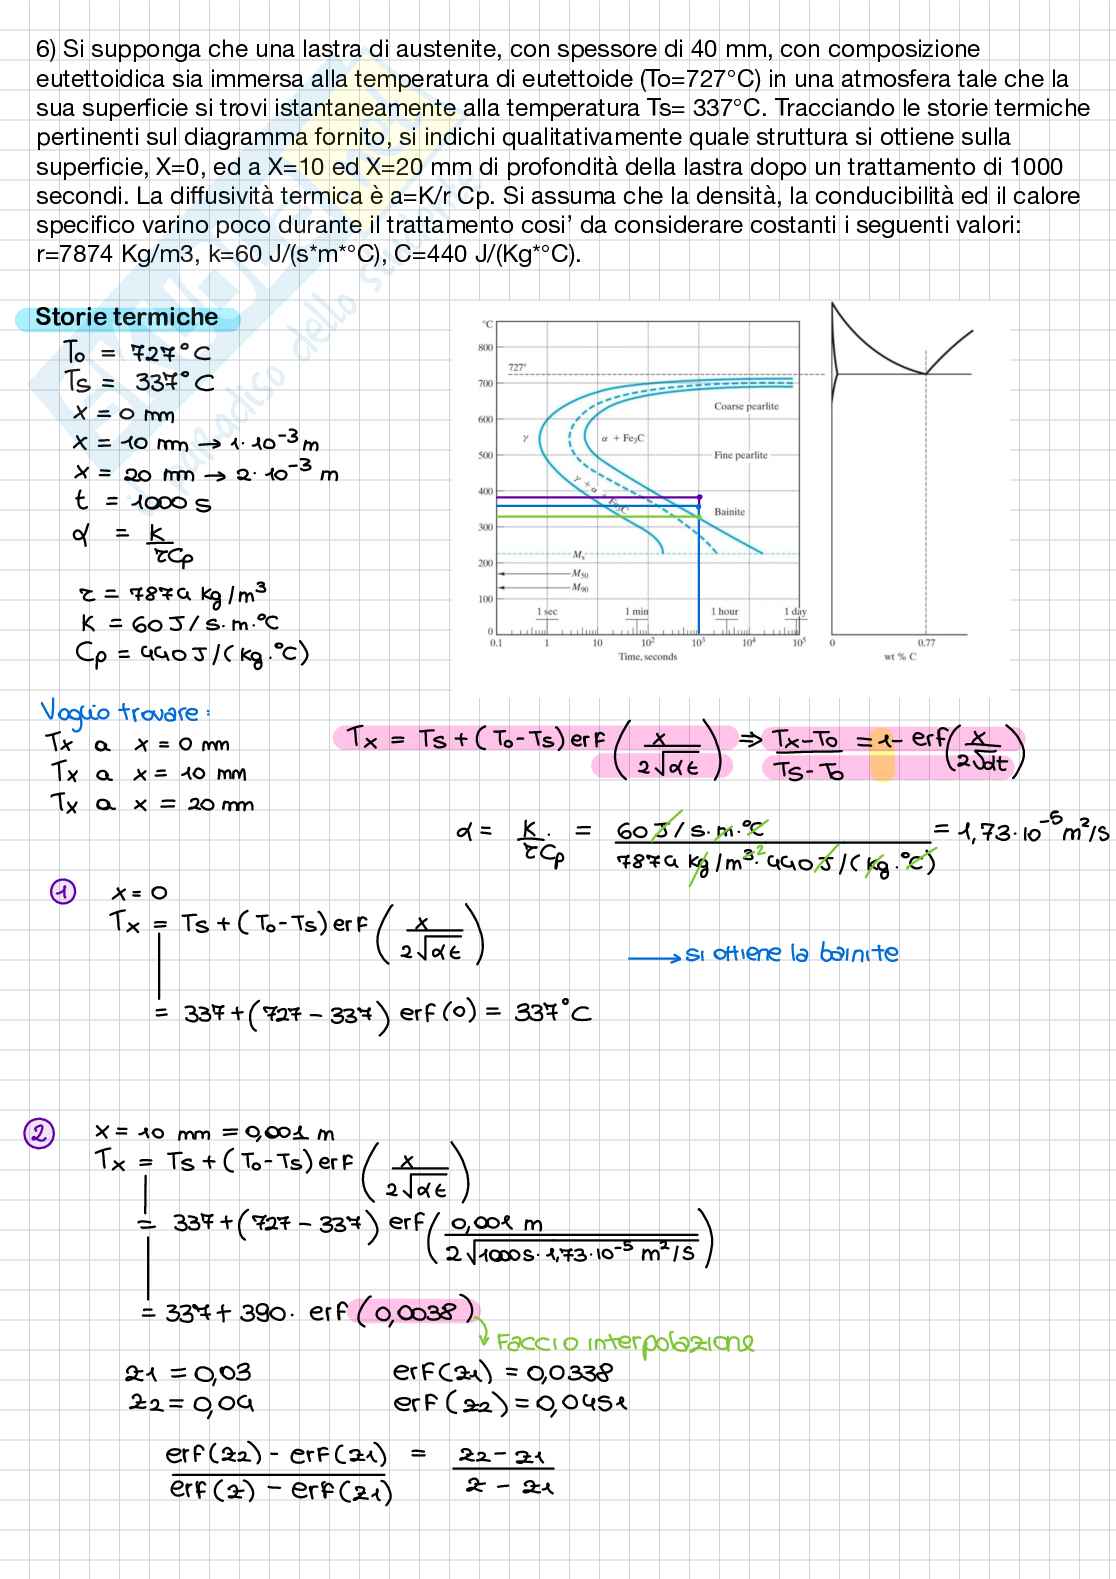 6) Si supponga che una lastra di austenite, con spessore di 40 mm, con composizione
eutettoidica sia immersa alla temperatura di eutettoide (To=727°C) in una atmosfera tale che la
sua superficie si trovi istantaneamente alla temperatura Ts= 337°C. Tracciando le storie termiche
pertinenti sul diagramma fornito, si indichi qualitativamente quale struttura si ottiene sulla
superficie, X=0, ed a X=10 ed X=20 mm di profondità della lastra dopo un trattamento di 1000
secondi. La diffusività termica è a=K/r Cp. Si assuma che la densità, la conducibilità ed il calore
specifico varino poco durante il trattamento cosi' da considerare costanti i seguenti valori:
r=7874 Kg/m3, k=60 J/(s*m*°C), C=440 J/(Kg*°C).
Storie termiche
To = 727°C
Ts = 337°C
x = 0 mm
x = 10 mm → 1·10⁻³ m
x = 20 mm → 2·10⁻³ m
t = 1000 s
α = K / τCp
τ = 7874 kg/m³
K = 60 J/s·m·°C
Cp = 440 J/(kg·°C)
°C
800
727°
700
600
500
400
300
200
100
0
Coarse pearlite
γ
α + Fe₃C
Fine pearlite
γ + α + Fe₃C
Bainite
Ms
M50
M90
1 sec
1 min
1 hour
1 day
0.1
1
10
10²
10³
10⁴
10⁵
Time, seconds
0
0.77
wt % C
Voglio trovare:
Tx a x = 0 mm
Tx a x = 10 mm
Tx a x = 20 mm
Tx = Ts + (To-Ts) erf (x / 2√αt) ⇒ Tx-To / Ts-To = 1- erf (x / 2√αt)
α = K / τCp = 60 J/s·m·°C / 7874 kg/m³·² 440 J/(kg·°C) = 1,73·10⁻⁵ m²/s
1 x = 0
Tx = Ts + (To-Ts) erf (x / 2√αt)
→ si ottiene la bainite
= 337 + (727 - 337) erf (0) = 337°C
2 x = 10 mm = 0,001 m
Tx = Ts + (To-Ts) erf (x / 2√αt)
= 337 + (727 - 337) erf (0,001 m / 2√1000s·1,73·10⁻⁵ m²/s)
= 337 + 390· erf (0,0038)
Faccio interpolazione
z1 = 0,03 erf(z1) = 0,0338
z2 = 0,04 erf(z2) = 0,0451
erf(z2) - erf(z1) / erf(z) - erf(z1) = z2 - z1 / z - z1